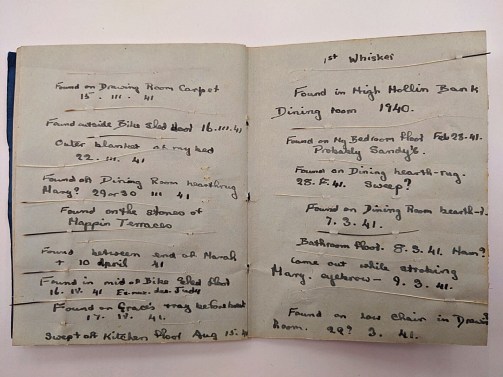 Found on Drawing Room Carpet
15 . III . 41
Found outside Bike Shed floor 16.III.41
Outer blanket of my bed
22 . III . 41
Found on Dining Room hearthrug
Mary? 29 or 30 III 41
Found on the stones of
Mappin Terraces
Found between end of March
+ 10 April 41
Found in mid of Bike Shed floor
16. IV. 41
Found on Grao's before
17. IV. 41.
Swept off Kitchen floor Aug 15. 4
1st Whisker
Found in High Hollin Bank
Dining room 1940.
Found on My Bedroom floor Feb 28.41.
Probably Sandy's.
Found on Dining hearth-rug.
28. 41. Sweep?
Found on Dining Room hearth-r.
7. 3. 41.
Bathroom floor. 8. 3. 41. Mam?
came out while stroking
Mary. eyebrow - 9. 3. 41.
Found on low chair in Drawing
Room. 29? 3. 41.